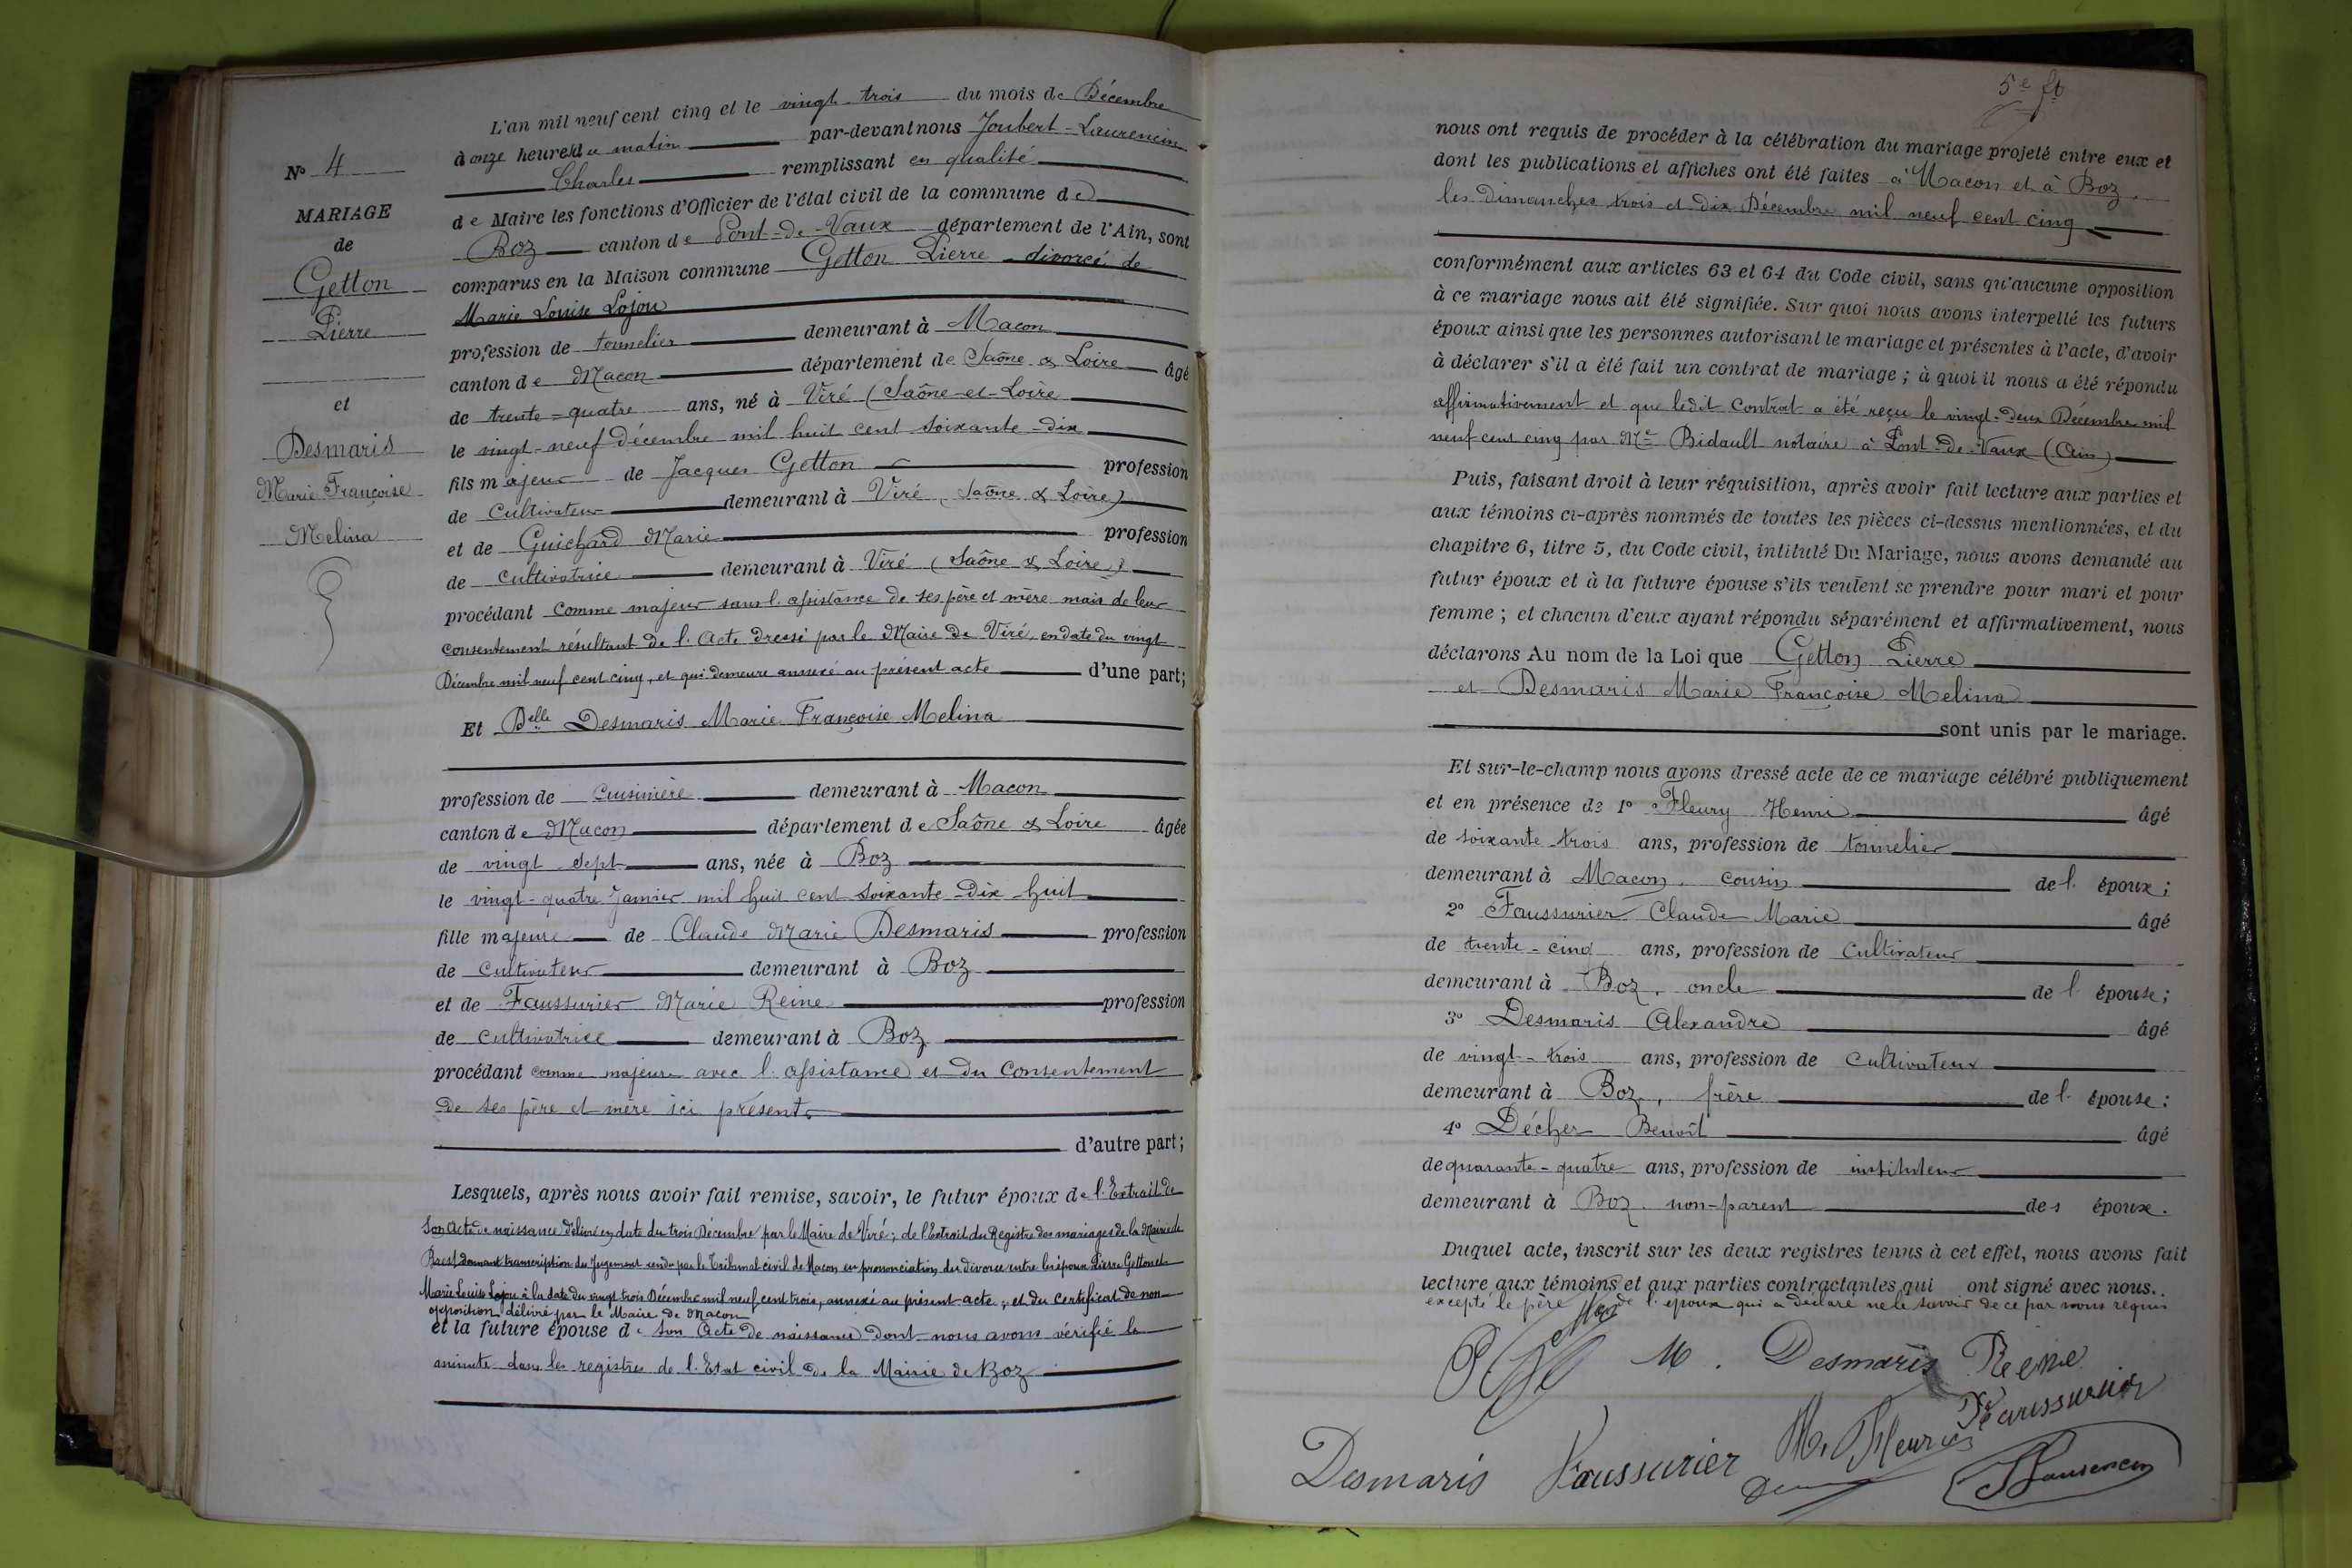 N° 4
MARIAGE
de
Getton
Pierre
et
Desmaris
Marie Françoise
Melina
L'an mil neuf cent cinq et le vingt trois du mois de Décembre
à onze heures du matin par-devant nous Joubert-Laurencin
Charles remplissant en qualité
de Maire les fonctions d'Officier de l'état civil de la commune de
Boz canton de Pont-de-Vaux département de l'Ain, sont
comparus en la Maison commune Getton Pierre divorcé de
Marie Louise Lojou
profession de tonnelier demeurant à Macon
canton de Macon département de Saône & Loire âgé
de trente-quatre ans, né à Viré (Saône-et-Loire
le vingt-neuf décembre mil huit cent soixante-dix
fils majeur de Jacques Getton profession
de Cultivateur demeurant à Viré (Saône & Loire)
et de Guichard Marie profession
de cultivatrice demeurant à Viré (Saône & Loire)
procédant comme majeur sans l'assistance de ses père et mère mais de leur
consentement résultant de l'Acte dressé par le Maire de Viré, en date du vingt
Décembre mil neuf cent cinq, et qui demeure annexé au présent acte d'une part;
Et Delle Desmaris Marie Françoise Melina
profession de cuisinière demeurant à Macon
canton de Macon département de Saône & Loire âgée
de vingt sept ans, née à Boz
le vingt-quatre Janvier mil huit cent soixante-dix-huit
fille majeure de Claude Marie Desmaris profession
de cultivateur demeurant à Boz
et de Faussurier Marie Reine profession
de cultivatrice demeurant à Boz
procédant comme majeure avec l'assistance et du Consentement
de ses père et mère ici présents
d'autre part;
Lesquels, après nous avoir fait remise, savoir, le futur époux de l'Extrait de
son Acte de naissance délivré en date du trois Décembre par le Maire de Viré; de l'Extrait du Registre des mariages de la Mairie de
Brest donnant transcription du Jugement rendu par le Tribunal civil de Macon en prononciation du divorce entre les époux Pierre Getton et
Marie Louise Lojou à la date du vingt trois Décembre mil neuf cent trois, annexé au présent acte; et du certificat de non-
opposition délivré par le Maire de Macon
et la future épouse de son Acte de naissance dont nous avons vérifié la
minute dans les registres de l'Etat civil de la Mairie de Boz
5e ft
nous ont requis de procéder à la célébration du mariage projeté entre eux et
dont les publications et affiches ont été faites à Macon et à Boz
les dimanches trois et dix Décembre mil neuf cent cinq
conformément aux articles 63 et 64 du Code civil, sans qu'aucune opposition
à ce mariage nous ait été signifiée. Sur quoi nous avons interpellé les futurs
époux ainsi que les personnes autorisant le mariage et présentes à l'acte, d'avoir
à déclarer s'il a été fait un contrat de mariage; à quoi il nous a été répondu
affirmativement et que ledit Contrat a été reçu le vingt-deux Décembre mil
neuf cent cinq par Me Bidault notaire à Pont-de-Vaux (Ain)
Puis, faisant droit à leur réquisition, après avoir fait lecture aux parties et
aux témoins ci-après nommés de toutes les pièces ci-dessus mentionnées, et du
chapitre 6, titre 5, du Code civil, intitulé Du Mariage, nous avons demandé au
futur époux et à la future épouse s'ils veulent se prendre pour mari et pour
femme; et chacun d'eux ayant répondu séparément et affirmativement, nous
déclarons Au nom de la Loi que Getton Pierre
et Desmaris Marie Françoise Melina
sont unis par le mariage.
Et sur-le-champ nous avons dressé acte de ce mariage célébré publiquement
et en présence de 1° Fleury Henri âgé
de soixante-trois ans, profession de tonnelier
demeurant à Macon. cousin de l'époux;
2° Faussurier Claude Marie âgé
de trente-cinq ans, profession de Cultivateur
demeurant à Boz, oncle de l'épouse;
3° Desmaris Alexandre âgé
de vingt-trois ans, profession de Cultivateur
demeurant à Boz, frère de l'épouse;
4° Décher Benoît âgé
de quarante-quatre ans, profession de instituteur
demeurant à Boz. non-parent des époux.
Duquel acte, inscrit sur les deux registres tenus à cet effet, nous avons fait
lecture aux témoins et aux parties contractantes qui ont signé avec nous.
excepté le père de l'époux qui a déclaré ne le savoir de ce par nous requis
M. Desmaris Reine
Faussurier
Desmaris Faussurier H. Fleury
Laurencin